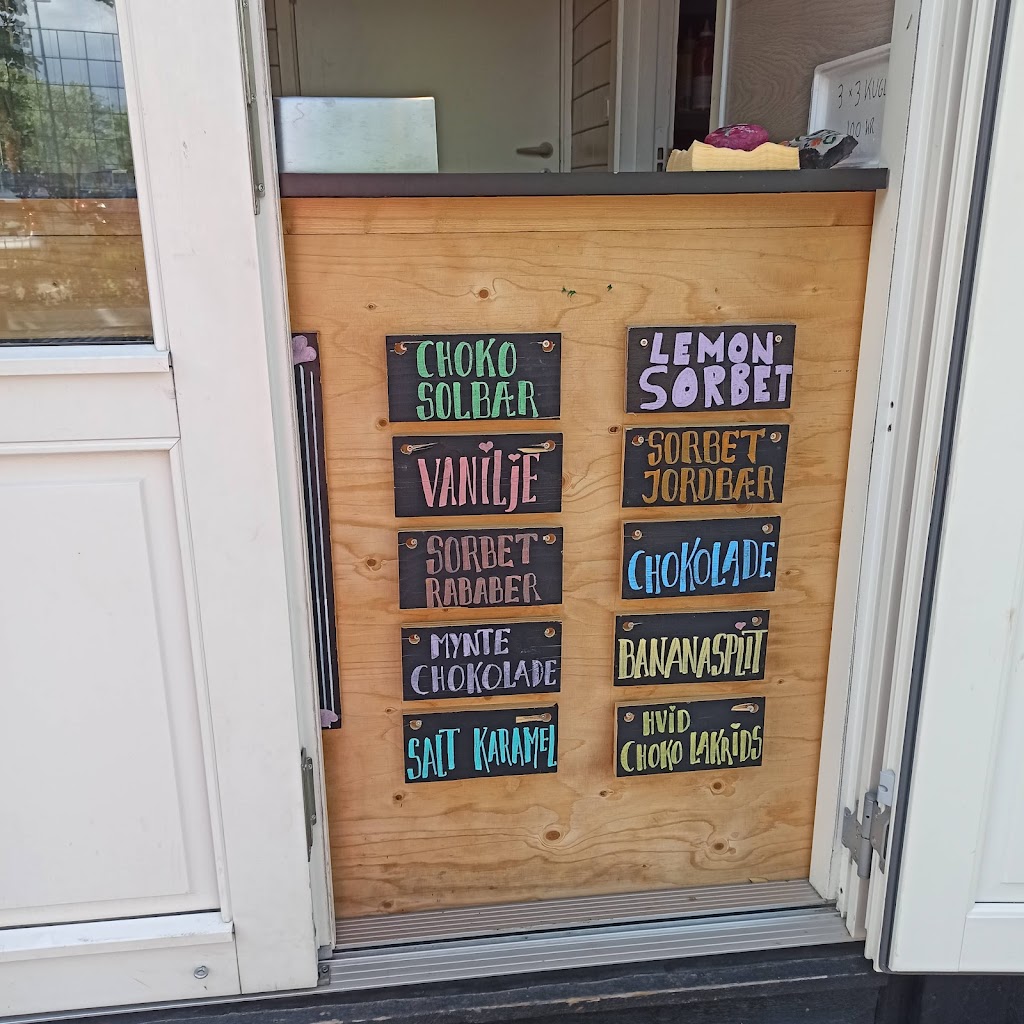 3 x 3 KUGL
100 KR
CHOKO
SOLBÆR
VANILJE
SORBET
RABABER
MYNTE
CHOKOLADE
SALT KARAMEL
LEMON
SORBET
SORBET
JORDBÆR
CHOKOLADE
BANANASPLIT
HVID
CHOKO LAKRIDS